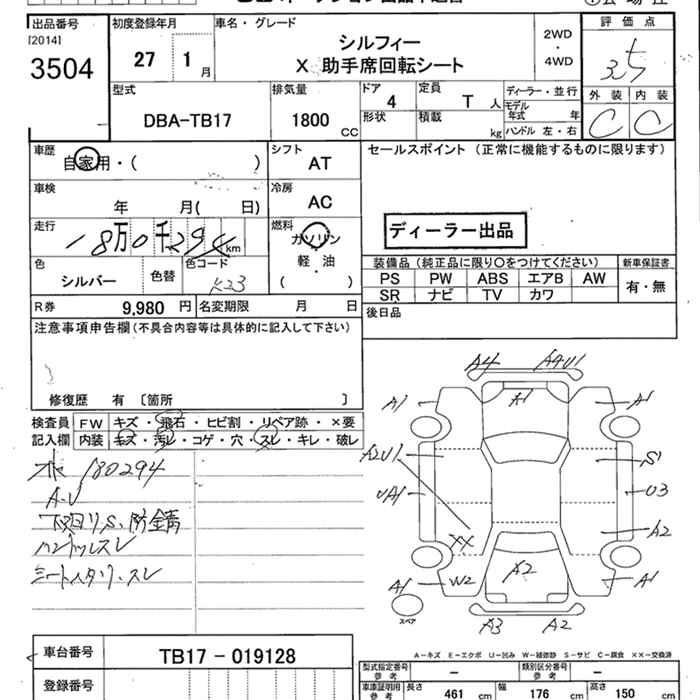 出品番号 初度登録年月 車名・グレード 評価点
[2014]
3504
27 1月
シルフィー
X 助手席回転シート
2WD
・
4WD
3.5
外装 内装
C C
型式 排気量 ドア 定員 ディーラー・並行
DBA-TB17 1800 CC 4 T人 モデル年式 年
形状 積載 kg ハンドル 左・右
車歴 シフト セールスポイント (正常に機能するものに限ります)
自家用・( ) AT
車検 冷房
年 月( 日) AC
走行 燃料
18万0千294km ガソリン
軽・油
( )
ディーラー出品
色 色替 色コード
シルバー K23
装備品(純正品に限り○をつけてください) 新車保証書
PS PW ABS エアB AW 有・無
SR ナビ TV カワ
R券 9,980円 名変期限 月 日
後日品
注意事項申告欄(不具合内容等は具体的に記入して下さい)
修復歴 有 〔箇所 〕
検査員 FW キズ・飛石・ヒビ割・リペア跡・×要
記入欄 内装 キズ・汚レ・コゲ・穴・スレ・キレ・破レ
180294
A・U
下回りS、防錆
ハンドルスレ
シートヘタリ・スレ
A4 AAU1
A1 A1 A1
A2U1 S1
UA1 U3
XX A2
W2 A2 A1
A1
スペア
A3 A2
A-キズ E-エクボ U-凹み W-補修跡 S-サビ C-腐食 XX-交換済
車台番号 TB17-019128
登録番号
型式指定番号 参考 - 類別区分番号 参考 -
車庫証明用 参考 長さ 461 cm 幅 176 cm 高さ 150 cm